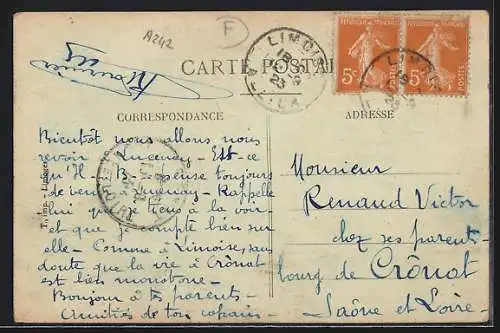 A242
F
Fournier
LIMOISE
ALLIER
CARTE POSTALE
5c
5c
POSTES
CORRESPONDANCE
ADRESSE
Bientôt nous allons nous
revoir Lucenay - Est-ce
qu'H - B - pense toujours
de venir Lucenay - Rappelle
lui que je tiens à la voir
et que je compte bien sur
elle - Comme à Limoise, sans
doute que la vie à Crônat
est bien monotone -
Bonjour à tes parents -
Amitiés de ton copain -
Monsieur
Renaud Victor
chez ses parents -
bourg de Crônat
Saône et Loire